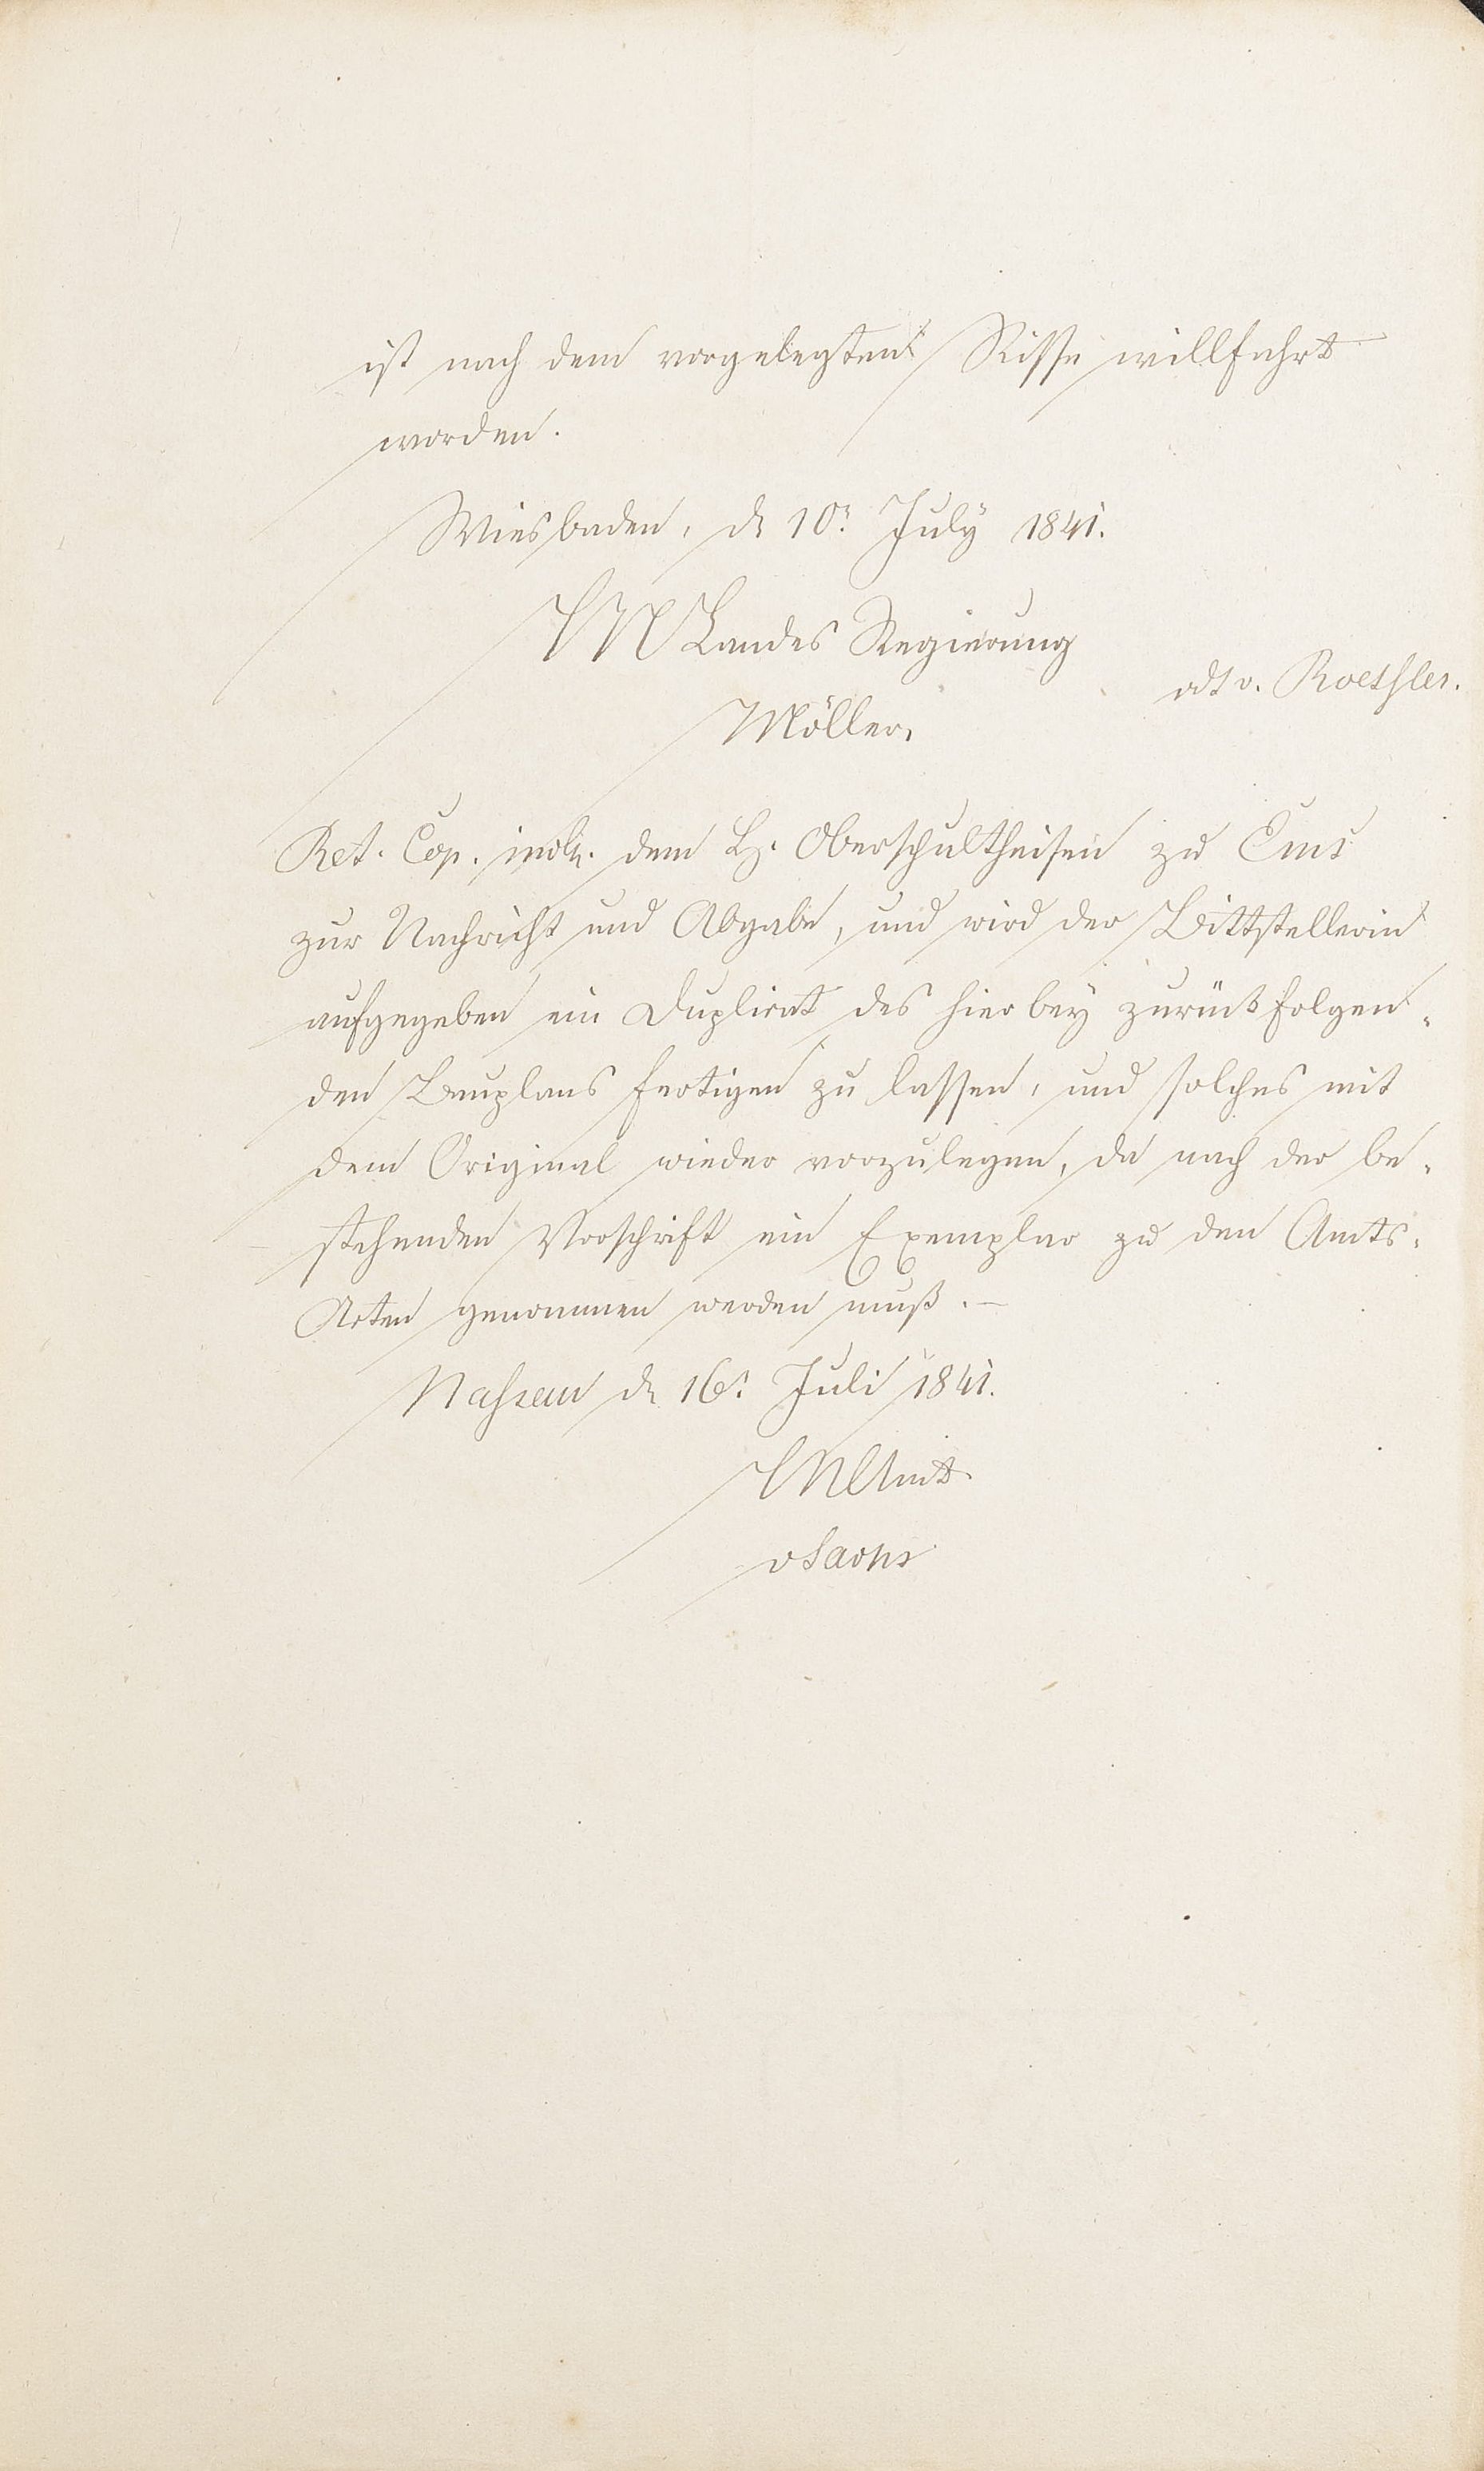 ist nach dem vorgelegten Risse willfahrt
worden.
Wiesbaden, d. 10t. July 1841.
HN Landes Regierung
vdt v. Roessler.
Möller,
Ret. Cop. dem H. Oberschultheisen zu Ems
zur Nachricht und Abgabe, und wird der Bittstellerin
aufgegeben ein Duplicat des hierbey zurückfolgen-
den Bauplans fertigen zu lassen, und solches mit
dem Original wieder vorzulegen, da nach der be-
stehenden Vorschrift ein Exemplar zu den Amts-
Acten genommen werden muß. –
Nassau d. 16t. Juli 1841.
HNAmt
vSachs